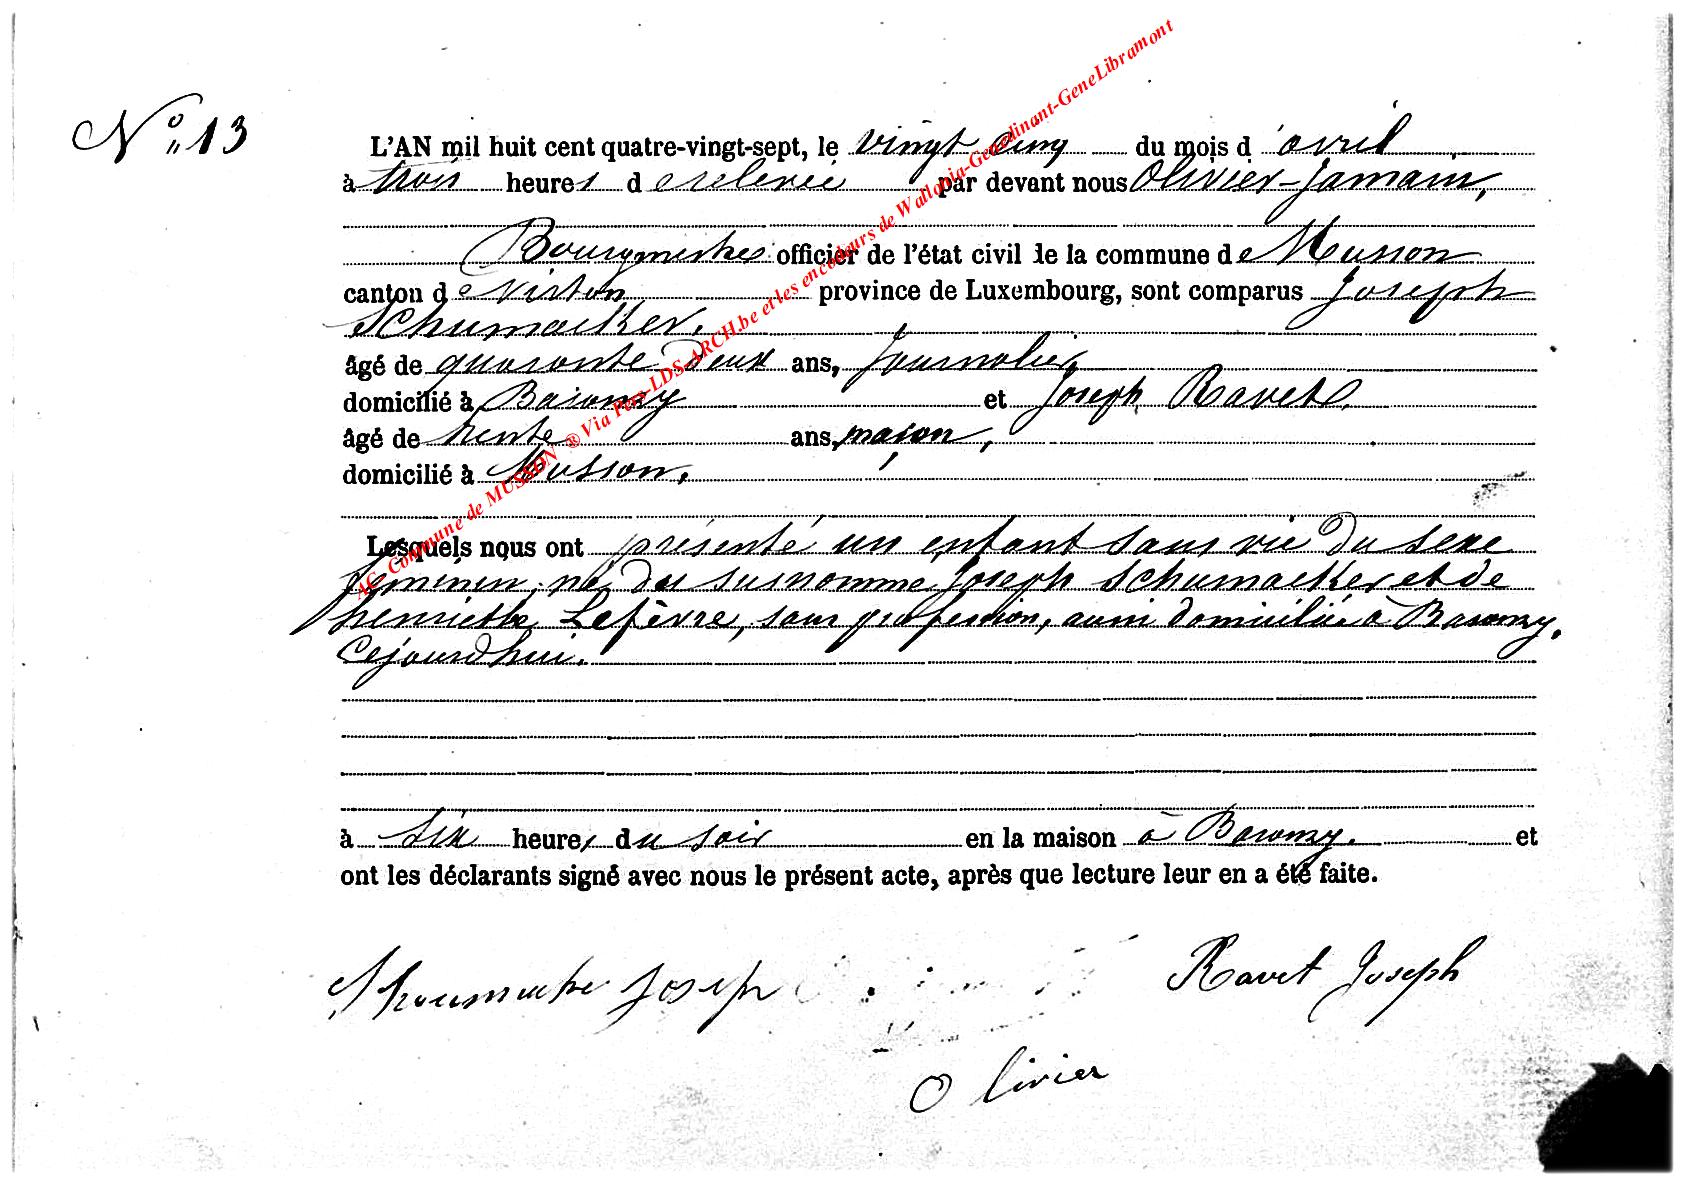 N° 13
L'AN mil huit cent quatre-vingt-sept, le vingt cinq du mois d'avril
à trois heures de relevée par devant nous Olivier-Jamain,
Bourgmestre officier de l'état civil de la commune de Musson
canton de Virton province de Luxembourg, sont comparus Joseph
Schumacker,
âgé de quarante deux ans, Journalier,
domicilié à Baranzy et Joseph Ravet,
âgé de trente ans, maçon,
domicilié à Musson,
Lesquels nous ont présenté un enfant sans vie du sexe
féminin, né du susnommé Joseph Schumacker et de
henriette Lefèvre, sans profession, aussi domiciliée à Baranzy,
Cejourd'hui.
à six heures du soir en la maison à Baranzy. et
ont les déclarants signé avec nous le présent acte, après que lecture leur en a été faite.
Joseph Ravet Joseph
Olivier
AC-Commune de MUSSON ® Via Pers-LDS-ARCH.be et les encodeurs de Wallonia-Genedinant-GeneLibramont